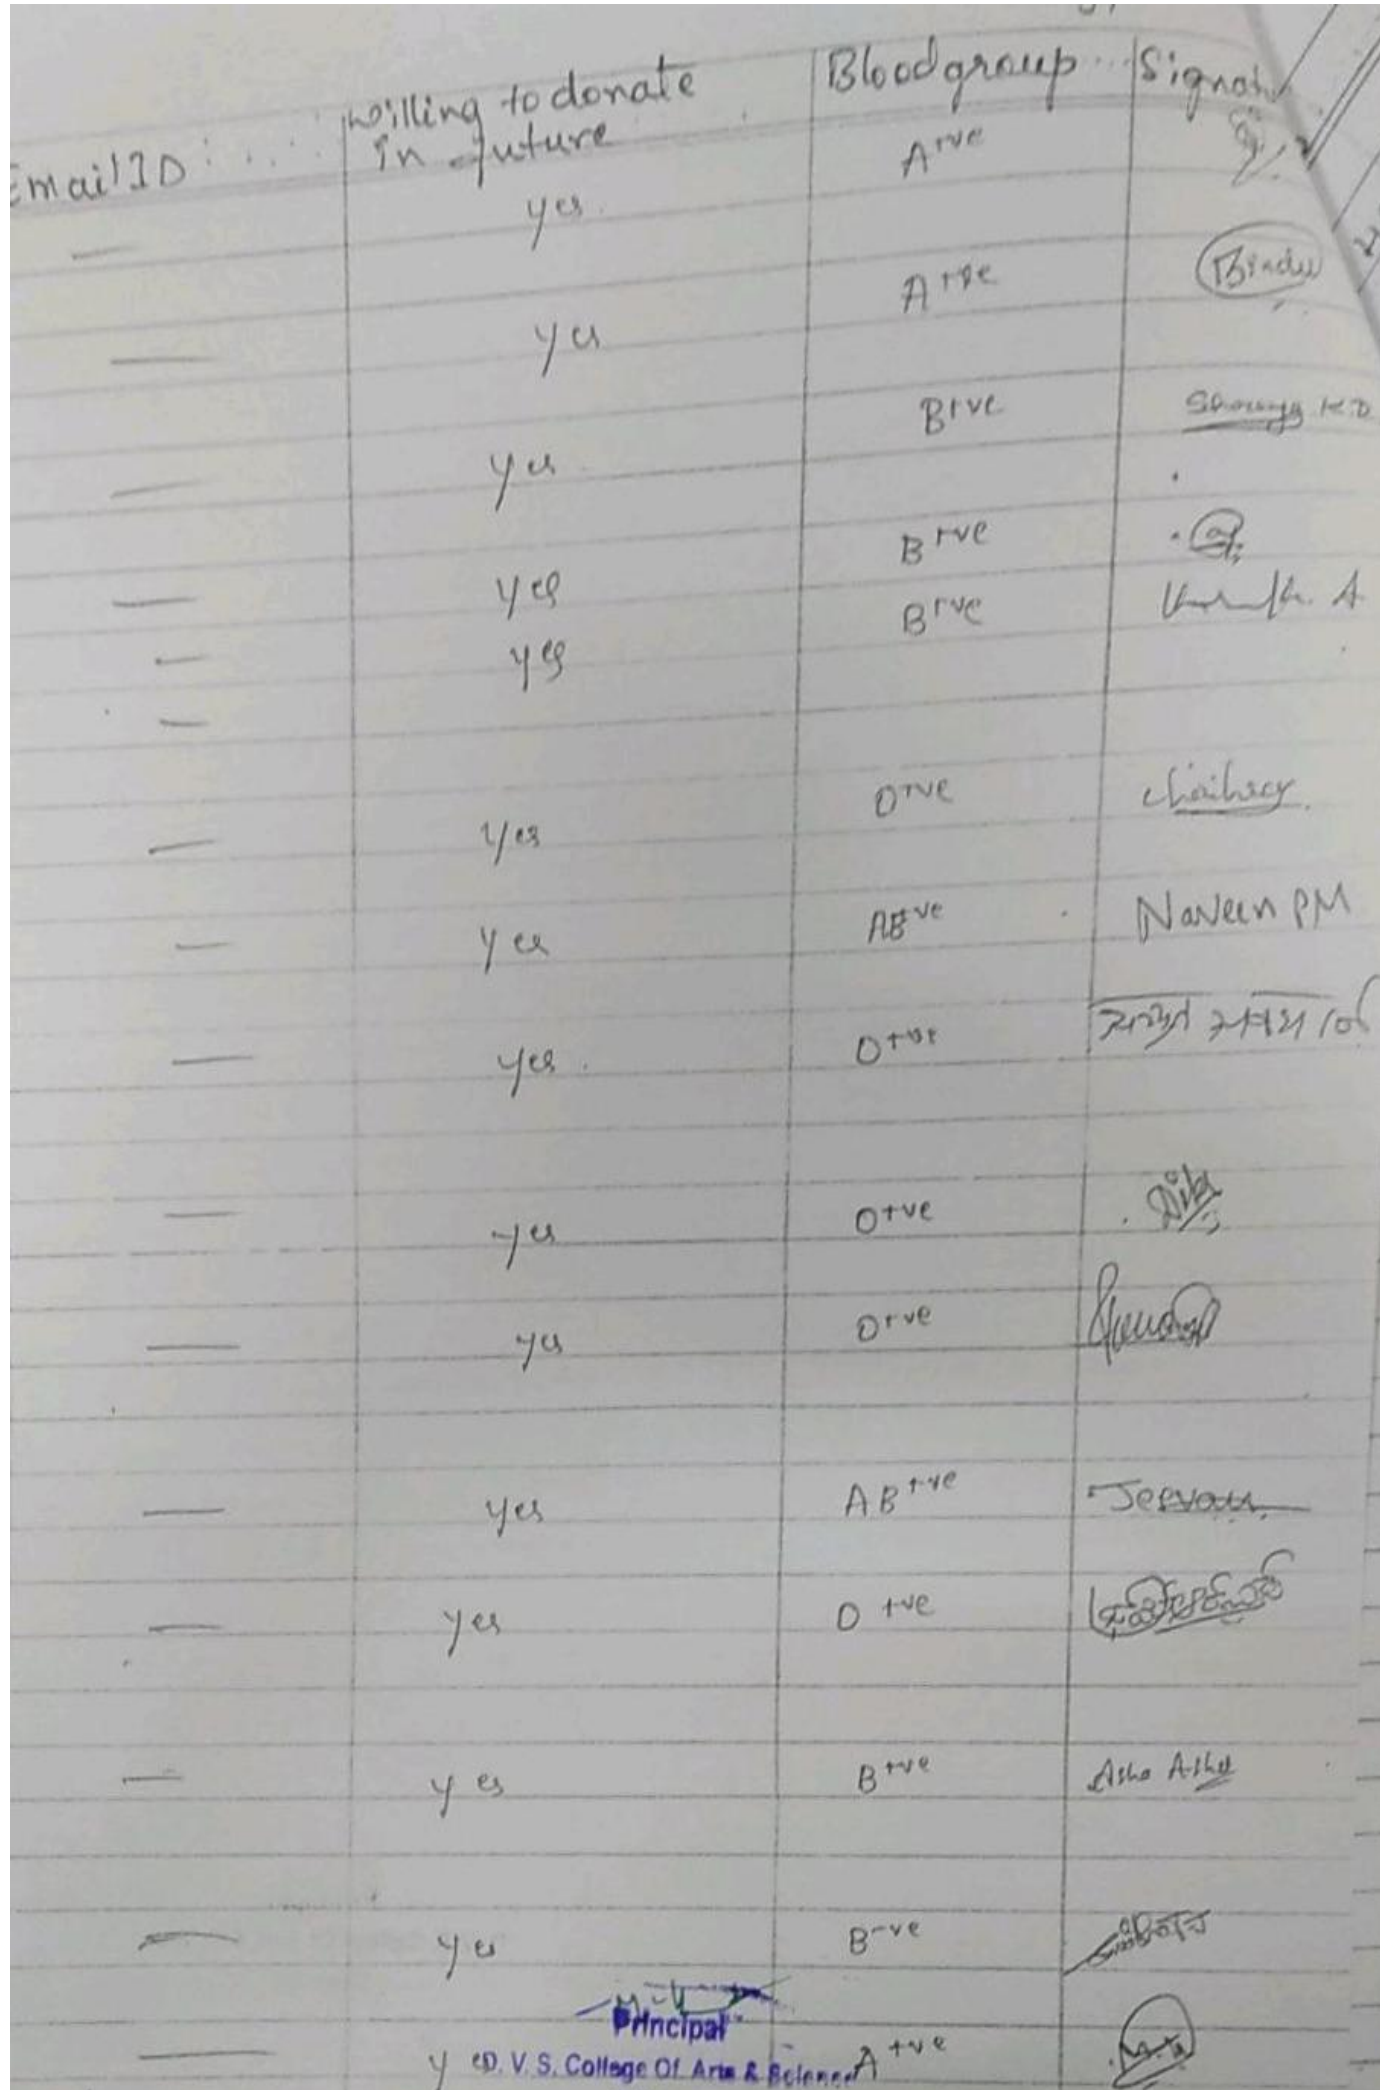 Email ID willing to donate Blood group Signat
in future
— yes A+ve
— yes A+ve Bindu
— yes B+ve
— yes B+ve
— yes B+ve
—
— yes O+ve
— yes AB+ve Naveen PM
— yes O+ve
— yes O+ve
— yes O+ve
— yes AB+ve Jeevan
— yes O +ve
— yes B+ve Asha Asha
— yes B-ve
Principal
— y A+ve
D. V. S. College Of Arts & Science